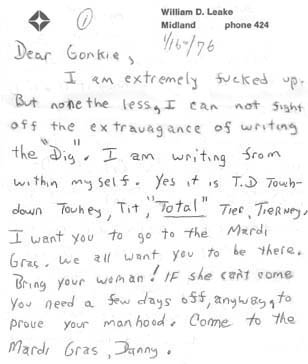 ①
William D. Leake
Midland phone 424
1/16/76
Dear Gonkie,
I am extremely fucked up.
But none the less, I can not fight
off the extravagance of writing
the "Dig". I am writing from
within myself. Yes it is T.D Touch-
down Touhey, Tit, "Total" Tier, Tierney.
I want you to go to the Mardi
Gras. We all want you to be there.
Bring your woman! IF she can't come
you need a few days off, anyway, to
prove your manhood. Come to the
Mardi Gras, Danny.